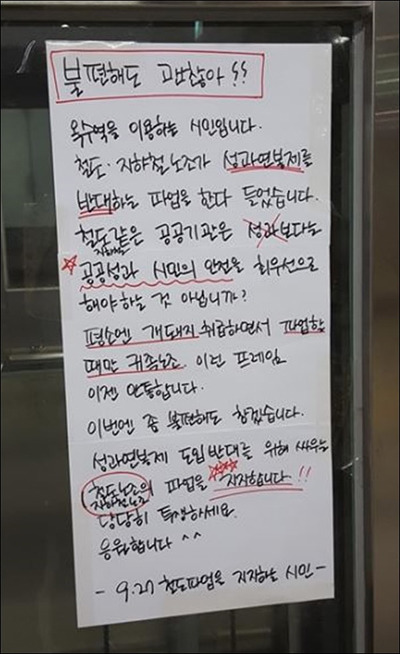 불편해도 괜찮아!!
옥수역을 이용하는 시민입니다.
철도·지하철노조가 성과연봉제를
반대하는 파업을 한다 들었습니다.
철도같은 공공기관은 성과보다는
지하철
공공성과 시민의 안전을 최우선으로
해야하는 것 아닙니까?
평소엔 개돼지 취급하면서 파업할
때만 귀족노조. 이런 프레임
이젠 안통합니다.
이번엔 좀 불편해도 참겠습니다.
성과연봉제 도입반대를 위해 싸우는
철도노조의 파업을 지지합니다!!
지하철노조
당당히 투쟁하세요.
응원합니다 ^^
- 9.27 철도파업을 지지하는 시민 -